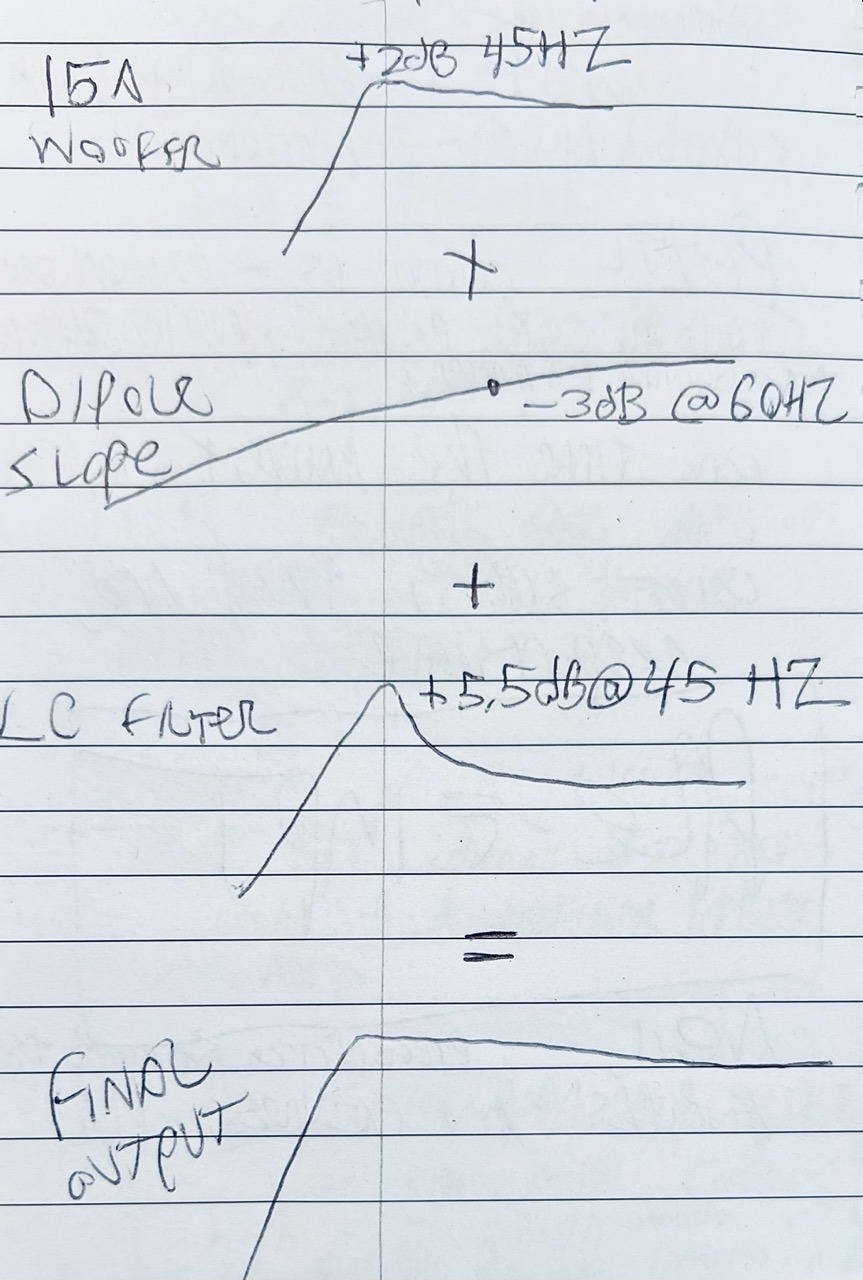 +2dB 45HZ
15A
WOOFER
+
DIPOLE
-3dB @ 60HZ
SLOPE
+
+5.5dB@45 HZ
LC FILTER
=
FINAL
OUTPUT